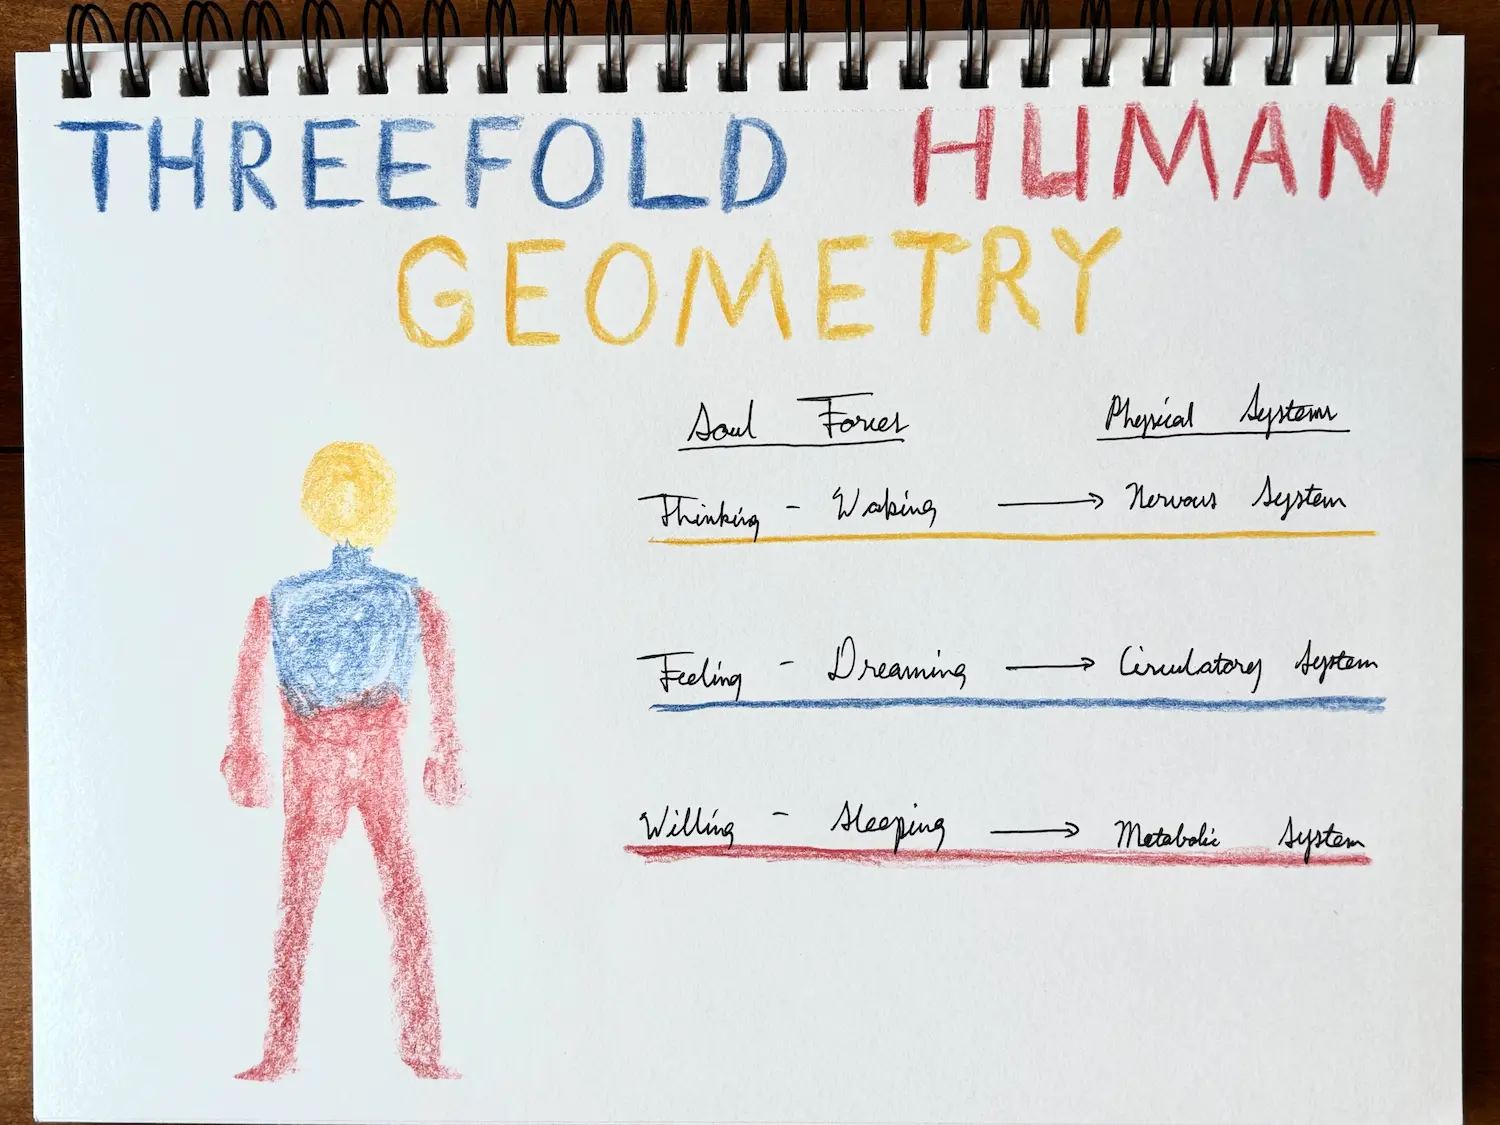 THREEFOLD HUMAN
GEOMETRY
Soul Forces Physical Systems
Thinking - Waking → Nervous System
Feeling - Dreaming → Circulatory System
Willing - Sleeping → Metabolic System